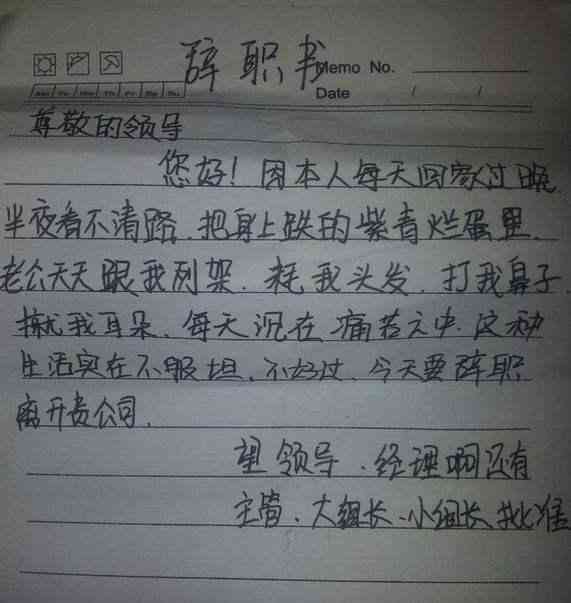 辞职书
Memo No.
Date / /
尊敬的领导
您好！因本人每天回家过晚
半夜看不清路、把身上跌的紫青烂蛋里、
老公天天跟我列架、耗我头发、打我鼻子、
揪我耳朵、每天沉在痛苦之中、这种
生活实在不服坦、不好过、今天要辞职
离开贵公司、
望领导、经理啊还有
主管、大组长、小组长批准